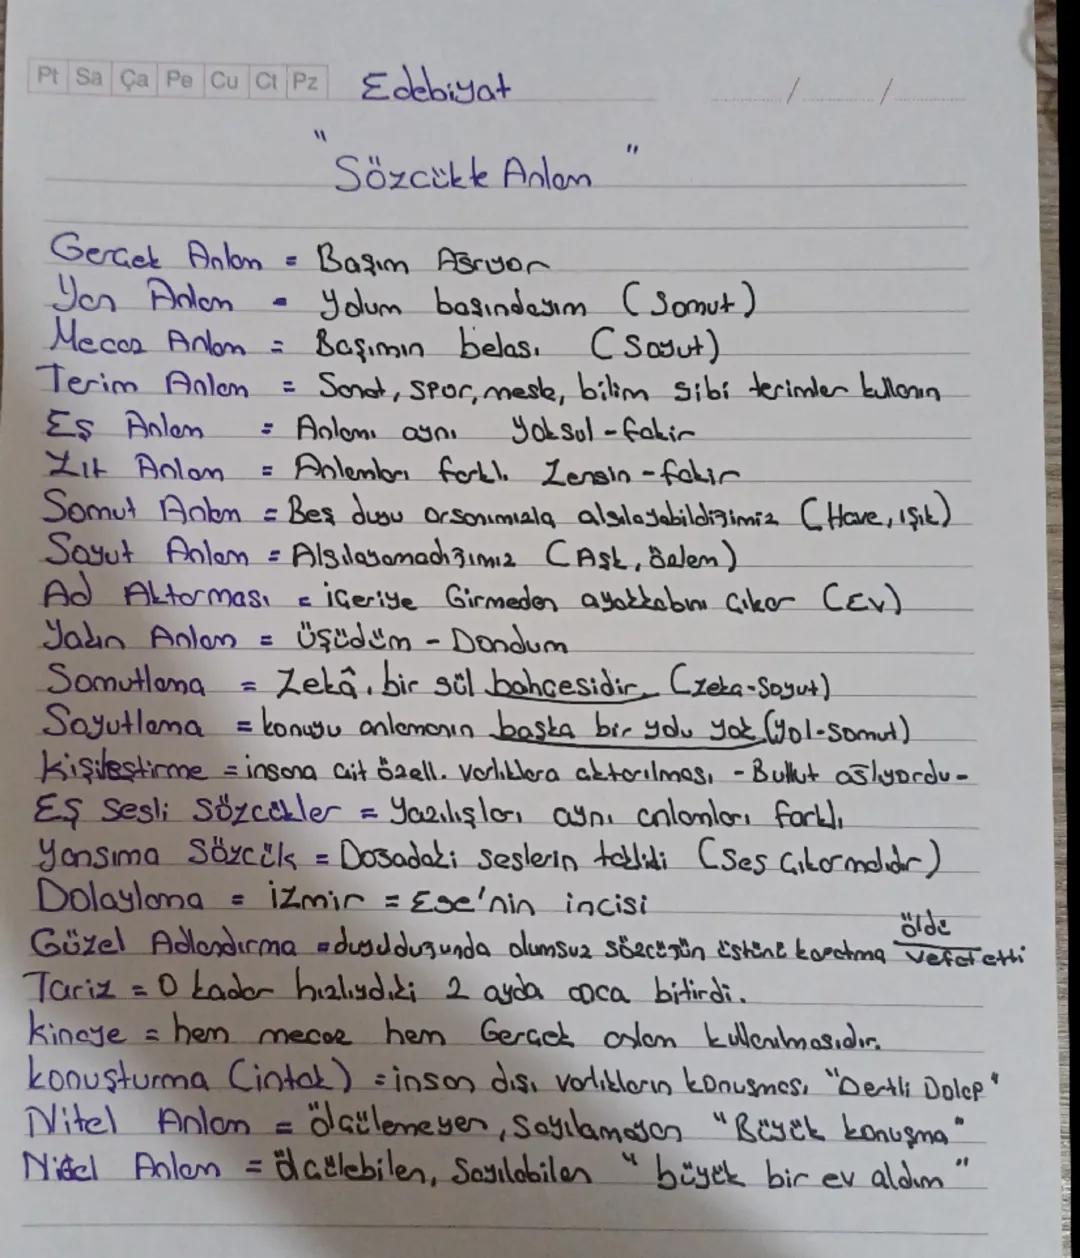 Pt Sa Ça Pe Cu Ct Pz Edebiyat / /
" Sözcükte Anlam "
Gerçek Anlam = Başım Ağrıyor
Yan Anlam = Yolum başındayım (Somut)
Mecaz Anlam = Başımın belası (Soyut)
Terim Anlam = Sanat, spor, meslek, bilim gibi terimler kullanın
Eş Anlam = Anlamı aynı Yoksul - fakir
Zıt Anlam = Anlamları farklı Zengin - fakir
Somut Anlam = Beş duyu organımızla algılayabildiğimiz (Hava, ışık)
Soyut Anlam = Algılayamadığımız (Aşk, özlem)
Ad Aktarması = içeriye Girmeden ayakkabını çıkar (Ev)
Yakın Anlam = Üşüdüm - Dondum
Somutlama = Zekâ, bir gül bahçesidir (zeka-Soyut)
Soyutlama = konuyu anlamanın başka bir yolu yok (yol-Somut)
Kişileştirme = insana ait özell. varlıklara aktarılması - Bulut ağlıyordu -
Eş Sesli Sözcükler = Yazılışları aynı anlamları farklı
Yansıma Sözcük = Doğadaki seslerin taklidi (Ses çıkarmalıdır)
Dolaylama = izmir = Ege'nin incisi
Güzel Adlandırma = duyulduğunda olumsuz sözcüğün üstünü kapatma öldü vefat etti
Tariz = O kadar hızlıydı ki 2 ayda anca bitirdi.
Kinaye = hem mecaz hem Gerçek anlam kullanılmasıdır.
Konuşturma (intak) = insan dışı varlıkların konuşması "Dertli Dolap"
Nitel Anlam = ölçülemeyen, Sayılamayan "Büyük konuşma"
Nicel Anlam = ölçülebilen, Sayılabilen "büyük bir ev aldım"